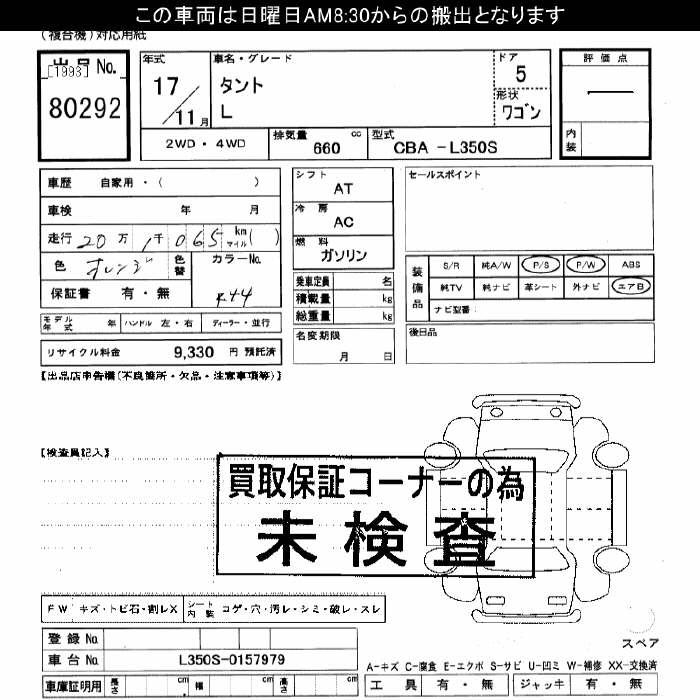 この車両は日曜日AM8:30からの搬出となります
(複合機)対応用紙
出品No.
[1993]
80292
年式
17
11月
車名・グレード
タント
L
ドア
5
形状
ワゴン
評価点
内装
2WD・4WD
排気量 cc
660
型式
CBA -L350S
車歴 自家用・( )
車検 年 月
走行 20万1千065 km マイル( )
色 オレンジ 色替 カラーNo.
R44
保証書 有・無
モデル年式 年 ハンドル 左・右 ディーラー・並行
リサイクル料金 9,330 円 預託済
シフト
AT
冷房
AC
燃料
ガソリン
乗車定員 名
積載量 kg
総重量 kg
名変期限
月 日
セールスポイント
装備品
S/R 純A/W P/S P/W ABS
純TV 純ナビ 革シート 外ナビ エアB
ナビ型番
後日品
【出品店申告欄(不良箇所・欠品・注意事項等)】
【検査員記入】
買取保証コーナーの為
未検査
FW キズ・トビ石・割レX シート内装 コゲ・穴・汚レ・シミ・破レ・スレ
登録No.
車台No. L350S-0157979
車庫証明用 長さ cm 幅 cm 高さ cm
スペア
A-キズ C-腐食 E-エクボ S-サビ U-凹ミ W-補修 XX-交換済
工具 有・無 ジャッキ 有・無